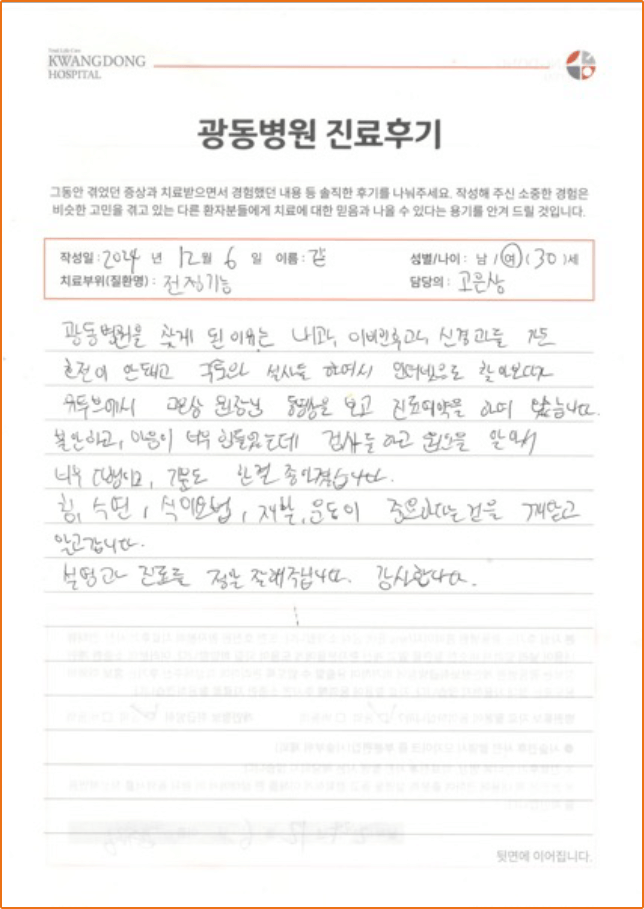 Total Life Care
KWANGDONG
HOSPITAL
광동병원 진료후기
그동안 겪었던 증상과 치료받으면서 경험했던 내용 등 솔직한 후기를 나눠주세요. 작성해 주신 소중한 경험은
비슷한 고민을 겪고 있는 다른 환자분들에게 치료에 대한 믿음과 나을 수 있다는 용기를 안겨 드릴 것입니다.
작성일 : 2024 년 12월 6 일 이름 : 성별/나이 : 남 / 여 ( 30 )세
치료부위(질환명) : 전정기능 담당의 : 고은상
광동병원을 찾게 된 이유는 내과, 이비인후과, 신경과를 가도
호전이 안돼고 구토와 설사를 하여서 인터넷으로 찾아보다가
유투브에서 고은상 원장님 동영상을 보고 진료예약을 하여 왔습니다.
불안하고, 마음이 너무 힘들었는데 검사를 하고 원인을 알아서
너무 다행이고, 기분도 한결 좋아졌습니다.
힘, 수면, 식이요법, 재활, 운동이 중요하다는 것을 깨닫고
알고갑니다.
설명과 진료를 정말 잘해주십니다. 감사합니다.
뒷면에 이어집니다.